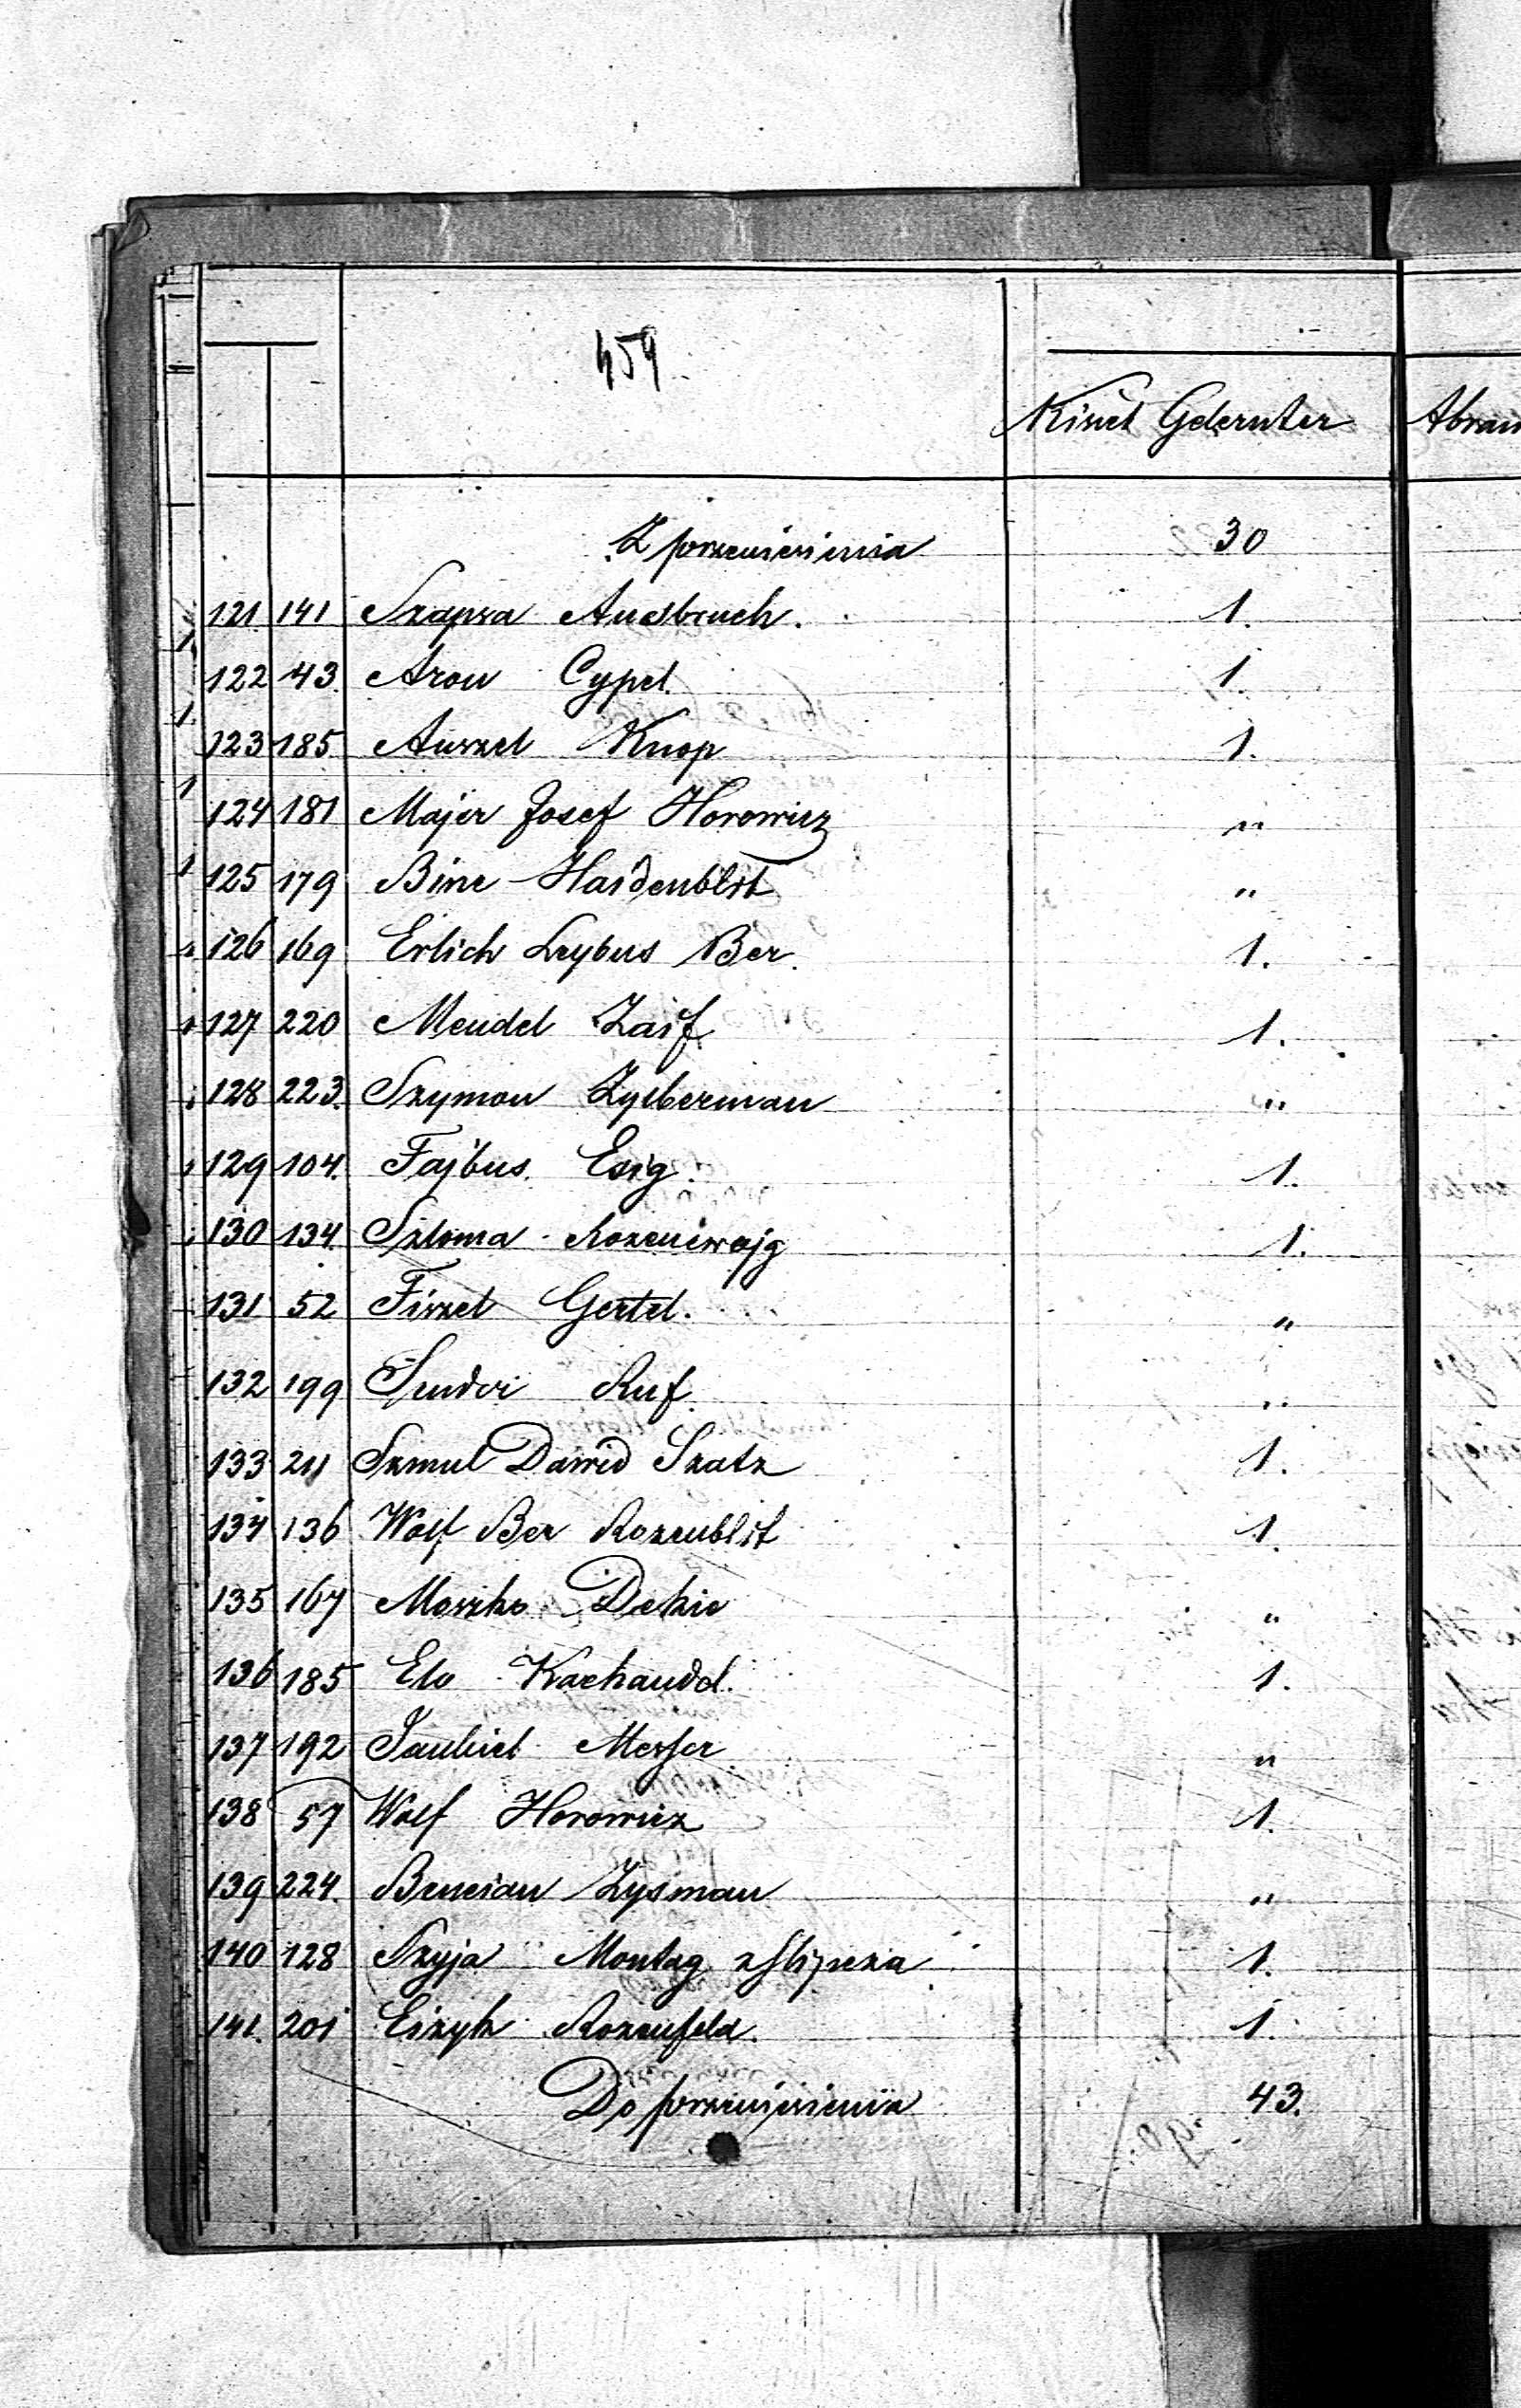 459
Kisiel Gelernter
Z przeniesienia 30
121 141 Szapsa Ausbruch. 1.
122 43. Aron Cypel. 1.
123 185 Anszel Knop 1.
124 181 Majer Josef Horowicz "
125 179 Bine Hardenblit "
126 169 Erlich Leybus Ber. 1.
127 220 Mendel Zaif 1.
128 223. Szymon Zylberman "
129 104. Fajbus. Esig. 1.
130 134. Szloma Rozencwajg 1.
131 52 Fiszel Gertel. "
132 199 Sender Ruf. "
133 211 Szmul Dawid Szatz 1.
134 136 Wolf Ber Rozenblit 1.
135 167 Moszko "
136 185 Elo 1.
137 192 Messer "
138 57 Wolf Horowicz 1.
139 224. Bencian Zysman "
140 128 Szyja Montag z Slipcza 1.
141. 201 Eizyk Rozenfeld. 1.
Do przeniesienia 43.